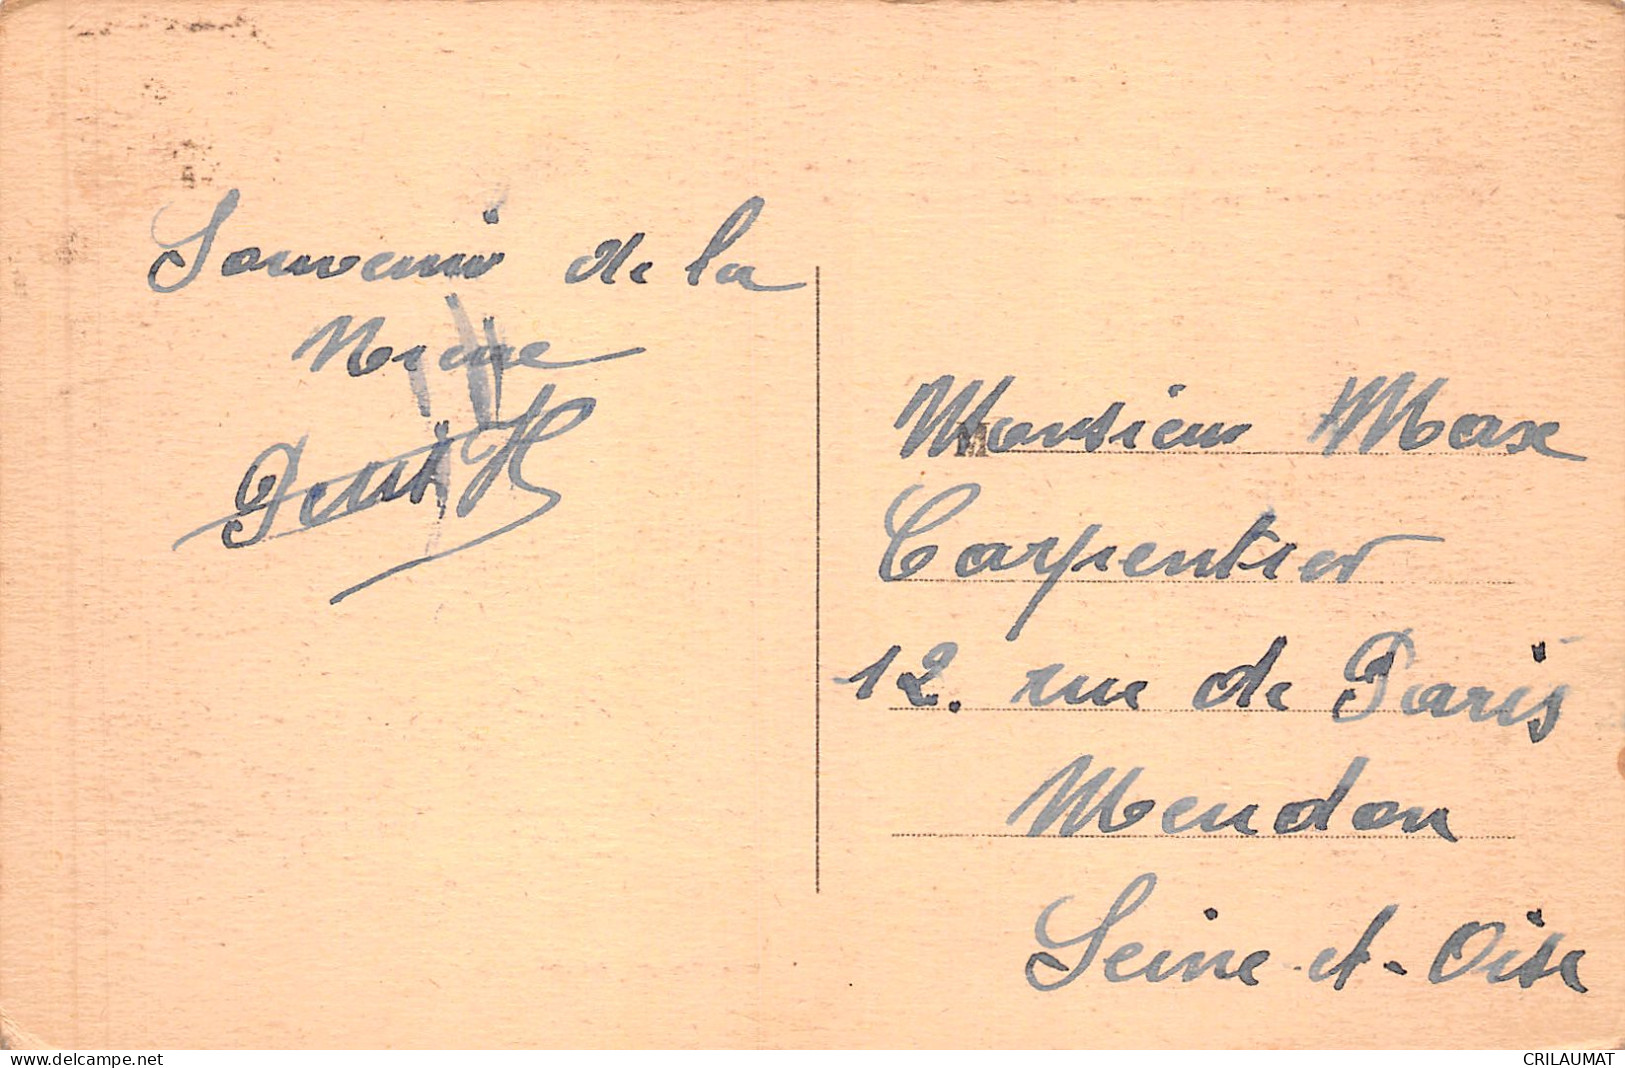 Souvenir de la
Petit H
Monsieur Max
Carpentier
12. rue de Paris
Meudon
Seine-et-Oise
www.delcampe.net
CRILAUMAT